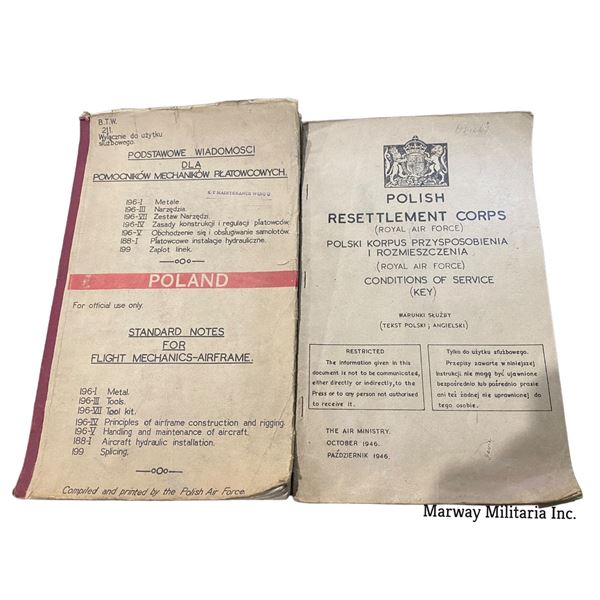 B.T.W.
211.
Wyłącznie do użytku
służbowego.
PODSTAWOWE WIADOMOŚCI
DLA
POMOCNIKÓW MECHANIKÓW PŁATOWCOWYCH.
196-I Metale.
196-III Narzędzia.
196-VII Zestaw Narzędzi.
196-IV Zasady konstrukcji i regulacji płatowców.
196-V Obchodzenie się i obsługiwanie samolotów.
188-I Płatowcowe instalacje hydrauliczne.
199 Zaplot linek.
POLAND
For official use only.
STANDARD NOTES
FOR
FLIGHT MECHANICS-AIRFRAME.
196-I Metal.
196-III Tools.
196-VII Tool kit.
196-IV Principles of airframe construction and rigging.
196-V Handling and maintenance of aircraft.
188-I Aircraft hydraulic installation.
199 Splicing.
Compiled and printed by the Polish Air Force.
POLISH
RESETTLEMENT CORPS
(ROYAL AIR FORCE)
POLSKI KORPUS PRZYSPOSOBIENIA
I ROZMIESZCZENIA
(ROYAL AIR FORCE)
CONDITIONS OF SERVICE
(KEY)
WARUNKI SŁUŻBY
(TEKST POLSKI i ANGIELSKI)
RESTRICTED
The information given in this
document is not to be communicated,
either directly or indirectly, to the
Press or to any person not authorised
to receive it.
Tylko do użytku służbowego.
Przepisy zawarte w niniejszej
Instrukcji nie mogą być ujawnione
bezpośrednio lub pośrednio prasie
ani też żadnej nie uprawnionej do
tego osobie.
THE AIR MINISTRY.
OCTOBER 1946.
PAŹDZIERNIK 1946.
Marway Militaria Inc.